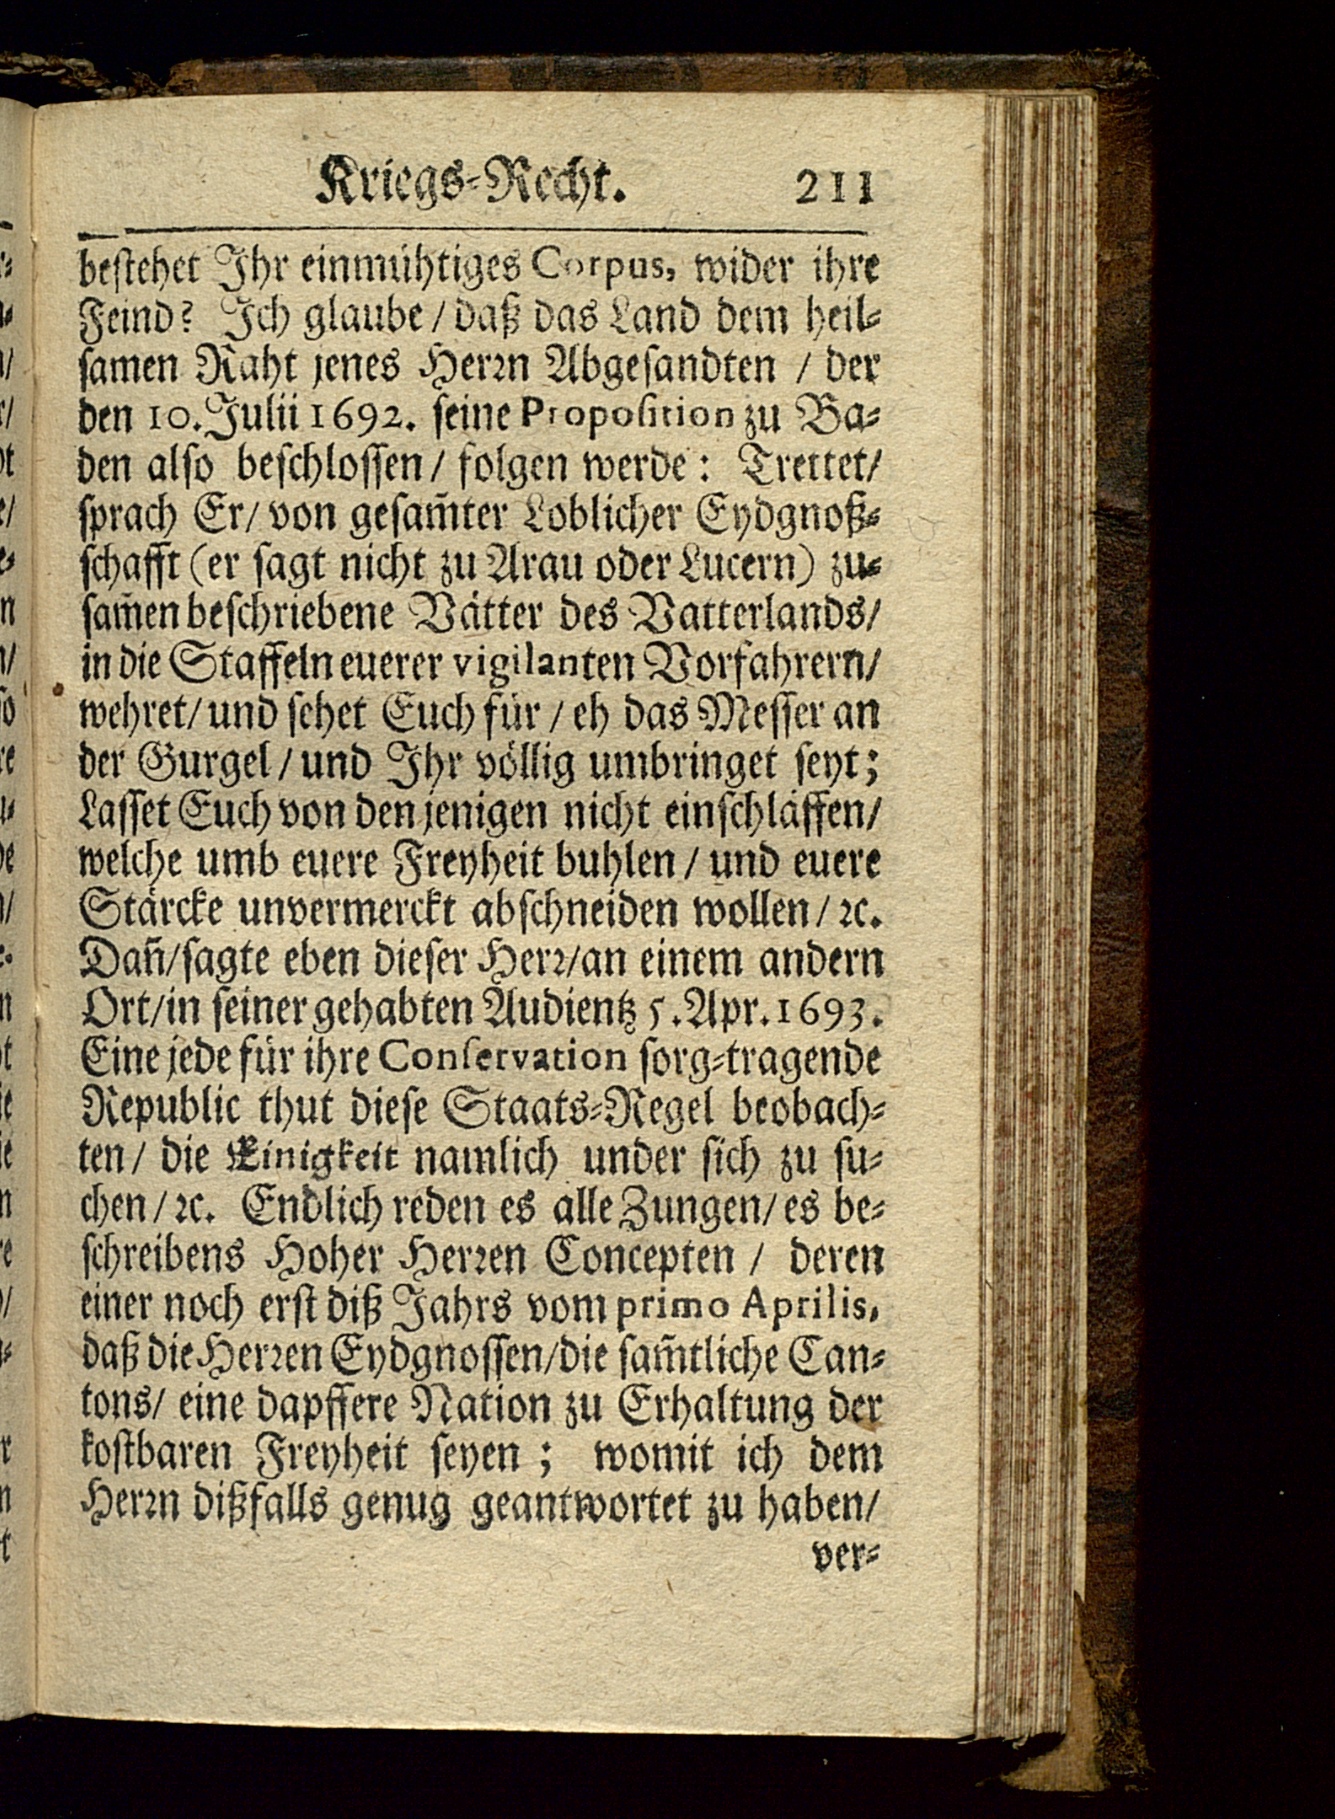 Kriegs-Recht. 211
bestehet Ihr einmühtiges Corpus, wider ihre
Feind? Ich glaube / daß das Land dem heil-
samen Raht jenes Herrn Abgesandten / der
den 10. Julii 1692. seine Proposition zu Ba-
den also beschlossen / folgen werde: Trettet /
sprach Er / von gesam̃ter Loblicher Eydgnoß-
schafft (er sagt nicht zu Arau oder Lucern) zu-
sam̃en beschriebene Vätter des Vatterlands /
in die Staffeln euerer vigilanten Vorfahrern /
wehret / und sehet Euch für / eh das Messer an
der Gurgel / und Ihr völlig umbringet seyt;
Lasset Euch von den jenigen nicht einschläffen /
welche umb euere Freyheit buhlen / und euere
Stärcke unvermerckt abschneiden wollen / ꝛc.
Dañ / sagte eben dieser Herꝛ / an einem andern
Ort / in seiner gehabten Audientz 5. Apr. 1693.
Eine jede für ihre Conservation sorg-tragende
Republic thut diese Staats-Regel beobach-
ten / die Einigkeit namlich under sich zu su-
chen / ꝛc. Endlich reden es alle Zungen / es be-
schreibens Hoher Herꝛen Concepten / deren
einer noch erst diß Jahrs vom primo Aprilis,
daß die Herꝛen Eydgnossen / die sam̃tliche Can-
tons / eine dapffere Nation zu Erhaltung der
kostbaren Freyheit seyen; womit ich dem
Herꝛn dißfalls genug geantwortet zu haben /
ver-